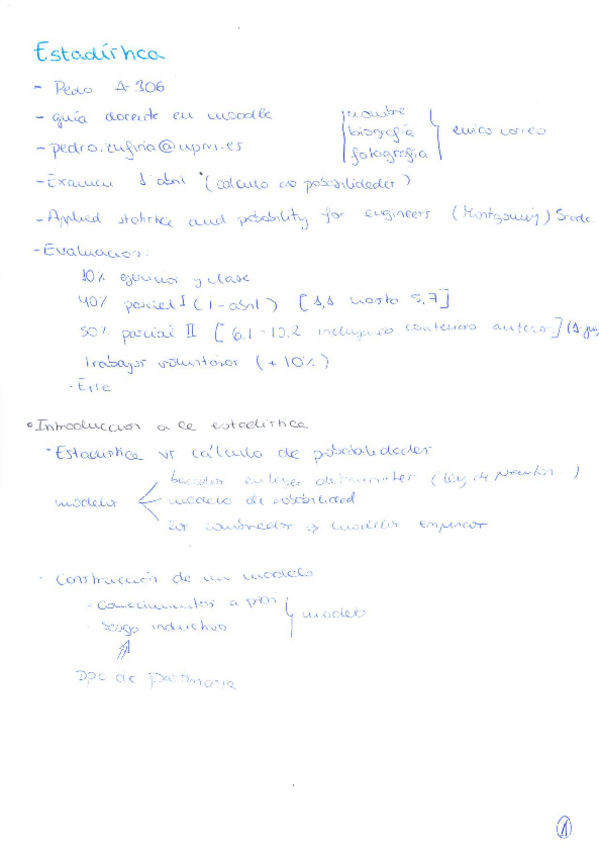 Estadística
- Pedro A-306
- guía docente en moodle
nombre
biografía
fotografía
envía correo
- pedro.zufiria@upm.es
- Examen 1 abril (cálculo de probabilidades)
- Applied statistics and probability for engineers (Montgomery)
- Evaluación:
10% y clase
40% parcial I (1-abril) [1,1 hasta 5,7]
50% parcial II [6.1 - 10.2 incluyendo contenido anterior]
trabajos voluntarios (+10%)
• Introduccion a la estadística
· Estadística vs cálculo de probabilidades
modelos
basados en leyes (ley de Newton)
modelo de probabilidad
modelos
· Construcción de un modelo
- Conocimientos a priori
- Sesgo inductivo
modelo
de parsimonia
1